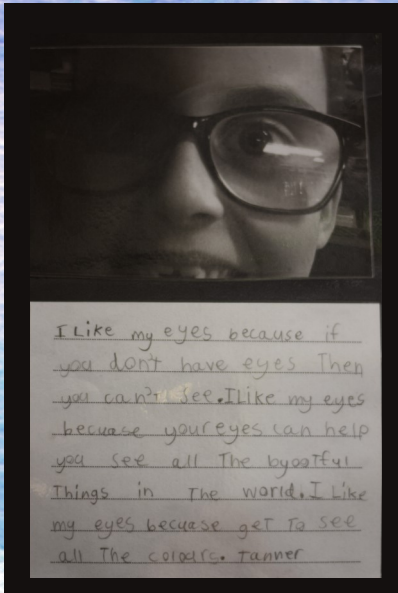 I Like my eyes because if
you don't have eyes Then
you can't see. I Like my eyes
becuase your eyes can help
you see all The byootful
Things in The world. I Like
my eyes becuase get To see
all The colours. Tanner